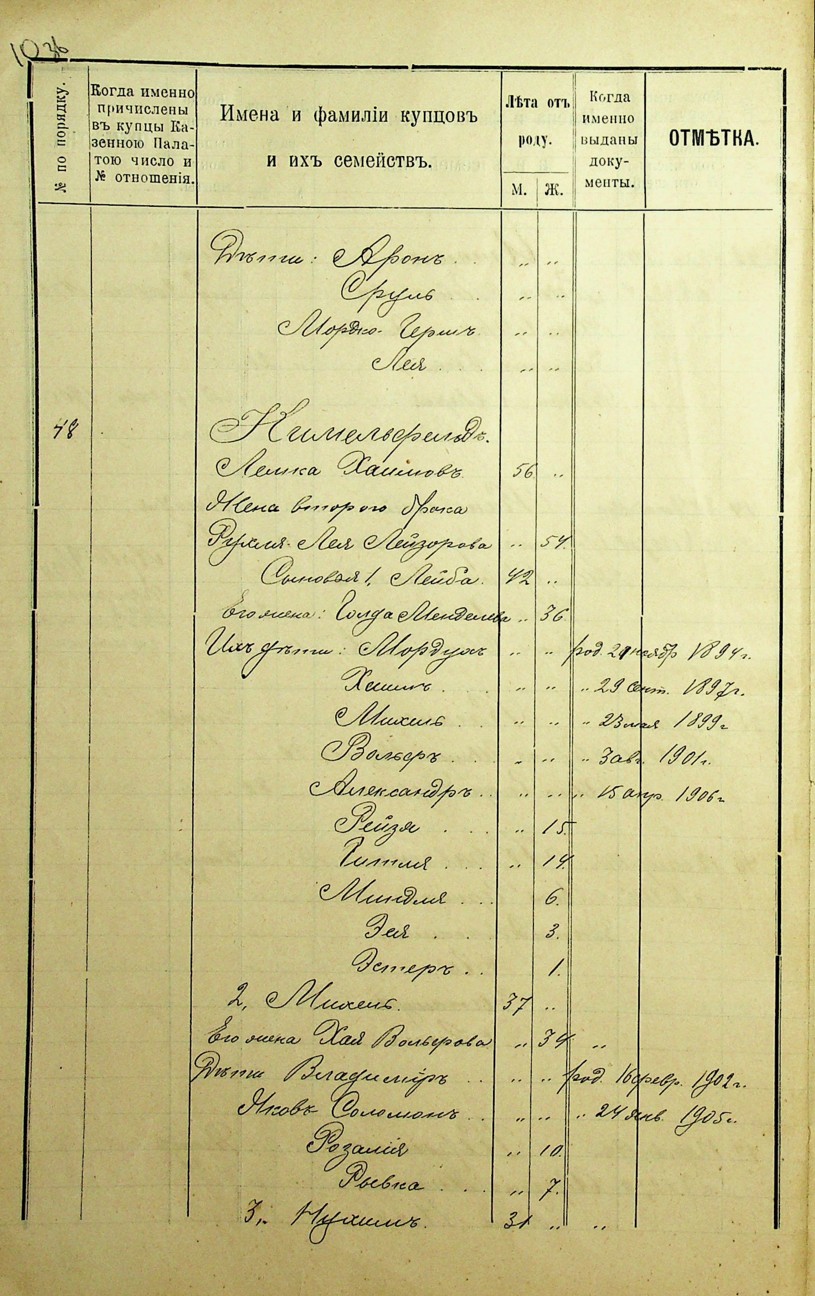 10
№ по порядку.
Когда именно
причислены
въ купцы Ка-
зенною Пала-
тою число и
№ отношенія.
Имена и фамиліи купцовъ
и ихъ семействъ.
Лѣта отъ
роду.
М. Ж.
Когда
именно
выданы
доку-
менты.
ОТМѢТКА.
Дѣти: Аронъ . . „ „
Сруль . „ „
Мордко-Гершъ „ „
Лея . . . „ „
48 Кимельфельдъ.
Лемка Хаимовъ 56 „
Жена второго брака
Рухля-Лея Лейзорова „ 54.
Сыновья 1, Лейба. 42 „
Его жена: Голда Менделева „ 36
Ихъ дѣти: Мордухъ „ „ род. ноябр 1894 г.
Хаимъ . . . „ „ „ 29 сент. 1897 г.
Михель . . . „ „ „ 23 мая 1899 г
Вольфъ . . . „ „ „ 3 авг. 1901 г.
Александръ . . „ „ „ 15 апр. 1906 г
Рейзя . . . „ 15.
Гитля . . . „ 14.
Миндля . . . 6.
Эля . . . 3.
Эстеръ . . 1.
2, Михель. 37 „
Его жена Хая Вольфова „ 34 „
Дѣти Владиміръ . . „ „ род. 16 февр. 1902 г.
Яковъ Соломонъ . . „ „ „ 24 янв. 1905 г.
Розалія „ 10.
Ривка . . . „ 7.
3, Нухимъ. 31 „ „